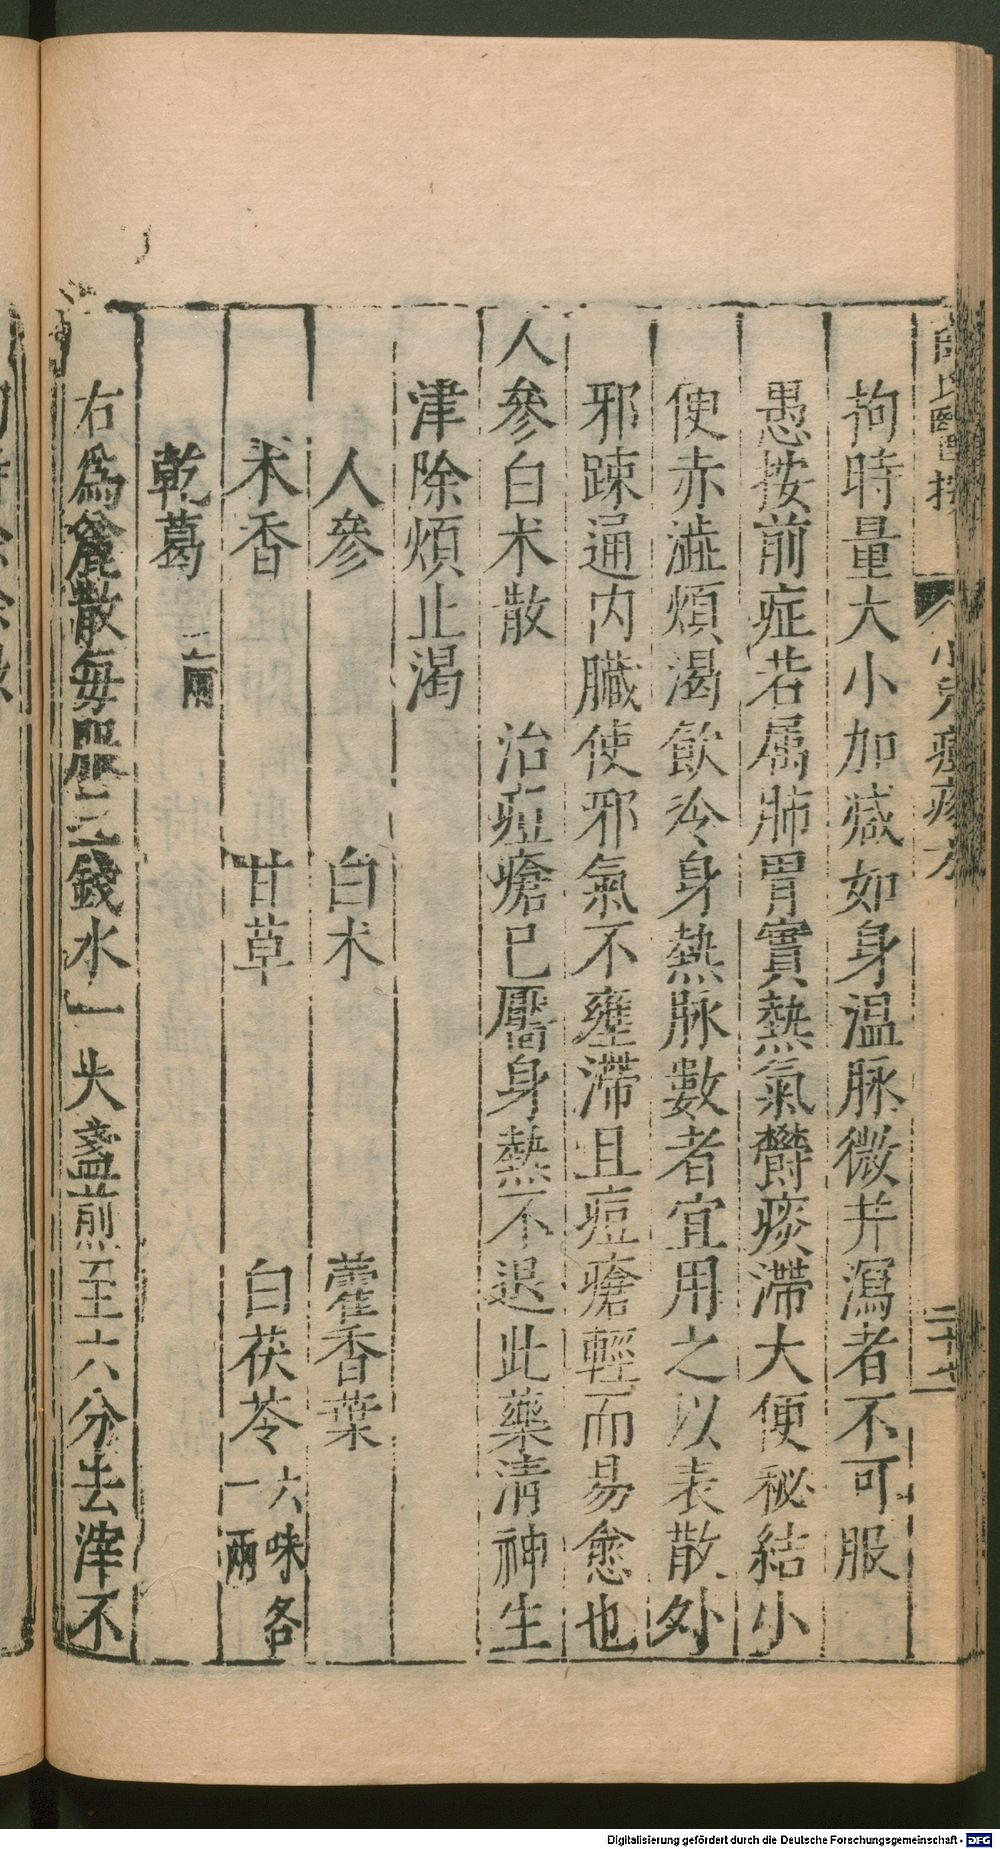 拘時量大小加減如身温脉微并瀉者不可服
愚按前症若属肺胃實熱氣欝痰滯大便秘結小
便赤澁煩渴飲冷身熱脉數者宜用之以表散外
邪踈通内臓使邪氣不壅滯且痘瘡輕而易愈也
人參白术散　治痘瘡已靨身熱不退此藥清神生
津除煩止渴
人參　白术　藿香葉
木香　甘草　白茯苓六味各一兩
乾葛二兩
右爲麄散每服三錢水一大盞煎至六分去滓不
小兒痘疹方
二十七
Digitalisierung gefördert durch die Deutsche Forschungsgemeinschaft - DFG